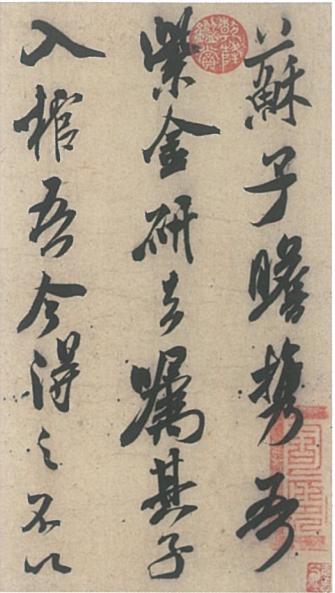 蘇子瞻携吾
紫金研去嘱其子
入棺吾今得之不以